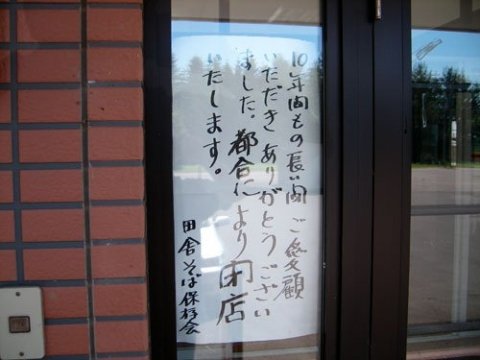 10年間もの長い間ご愛顧
いただきありがとうござい
ました。都合により閉店
いたします。
田舎そば保存会